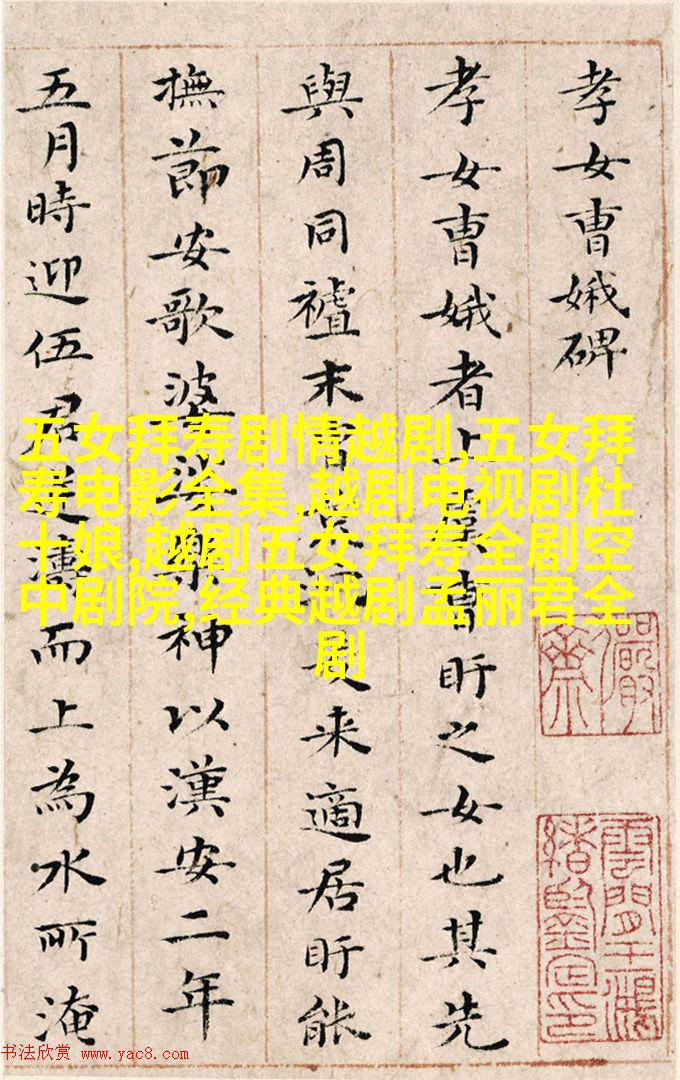 孝女曹娥碑
孝女曹娥者上虞曹盱之女也其先
與周同祖末胄来適居盱能
撫節安歌婆娑樂神以漢安二年
五月時迎伍君逆濤而上為水所淹
五女拜寿剧情越剧,五女拜
寿电影全集,越剧电视剧杜
十娘,越剧五女拜寿全剧空
中剧院,经典越剧孟丽君全
剧
儼齋
雲間王鴻緒鑒定印
书法欣赏 www.yac8.com